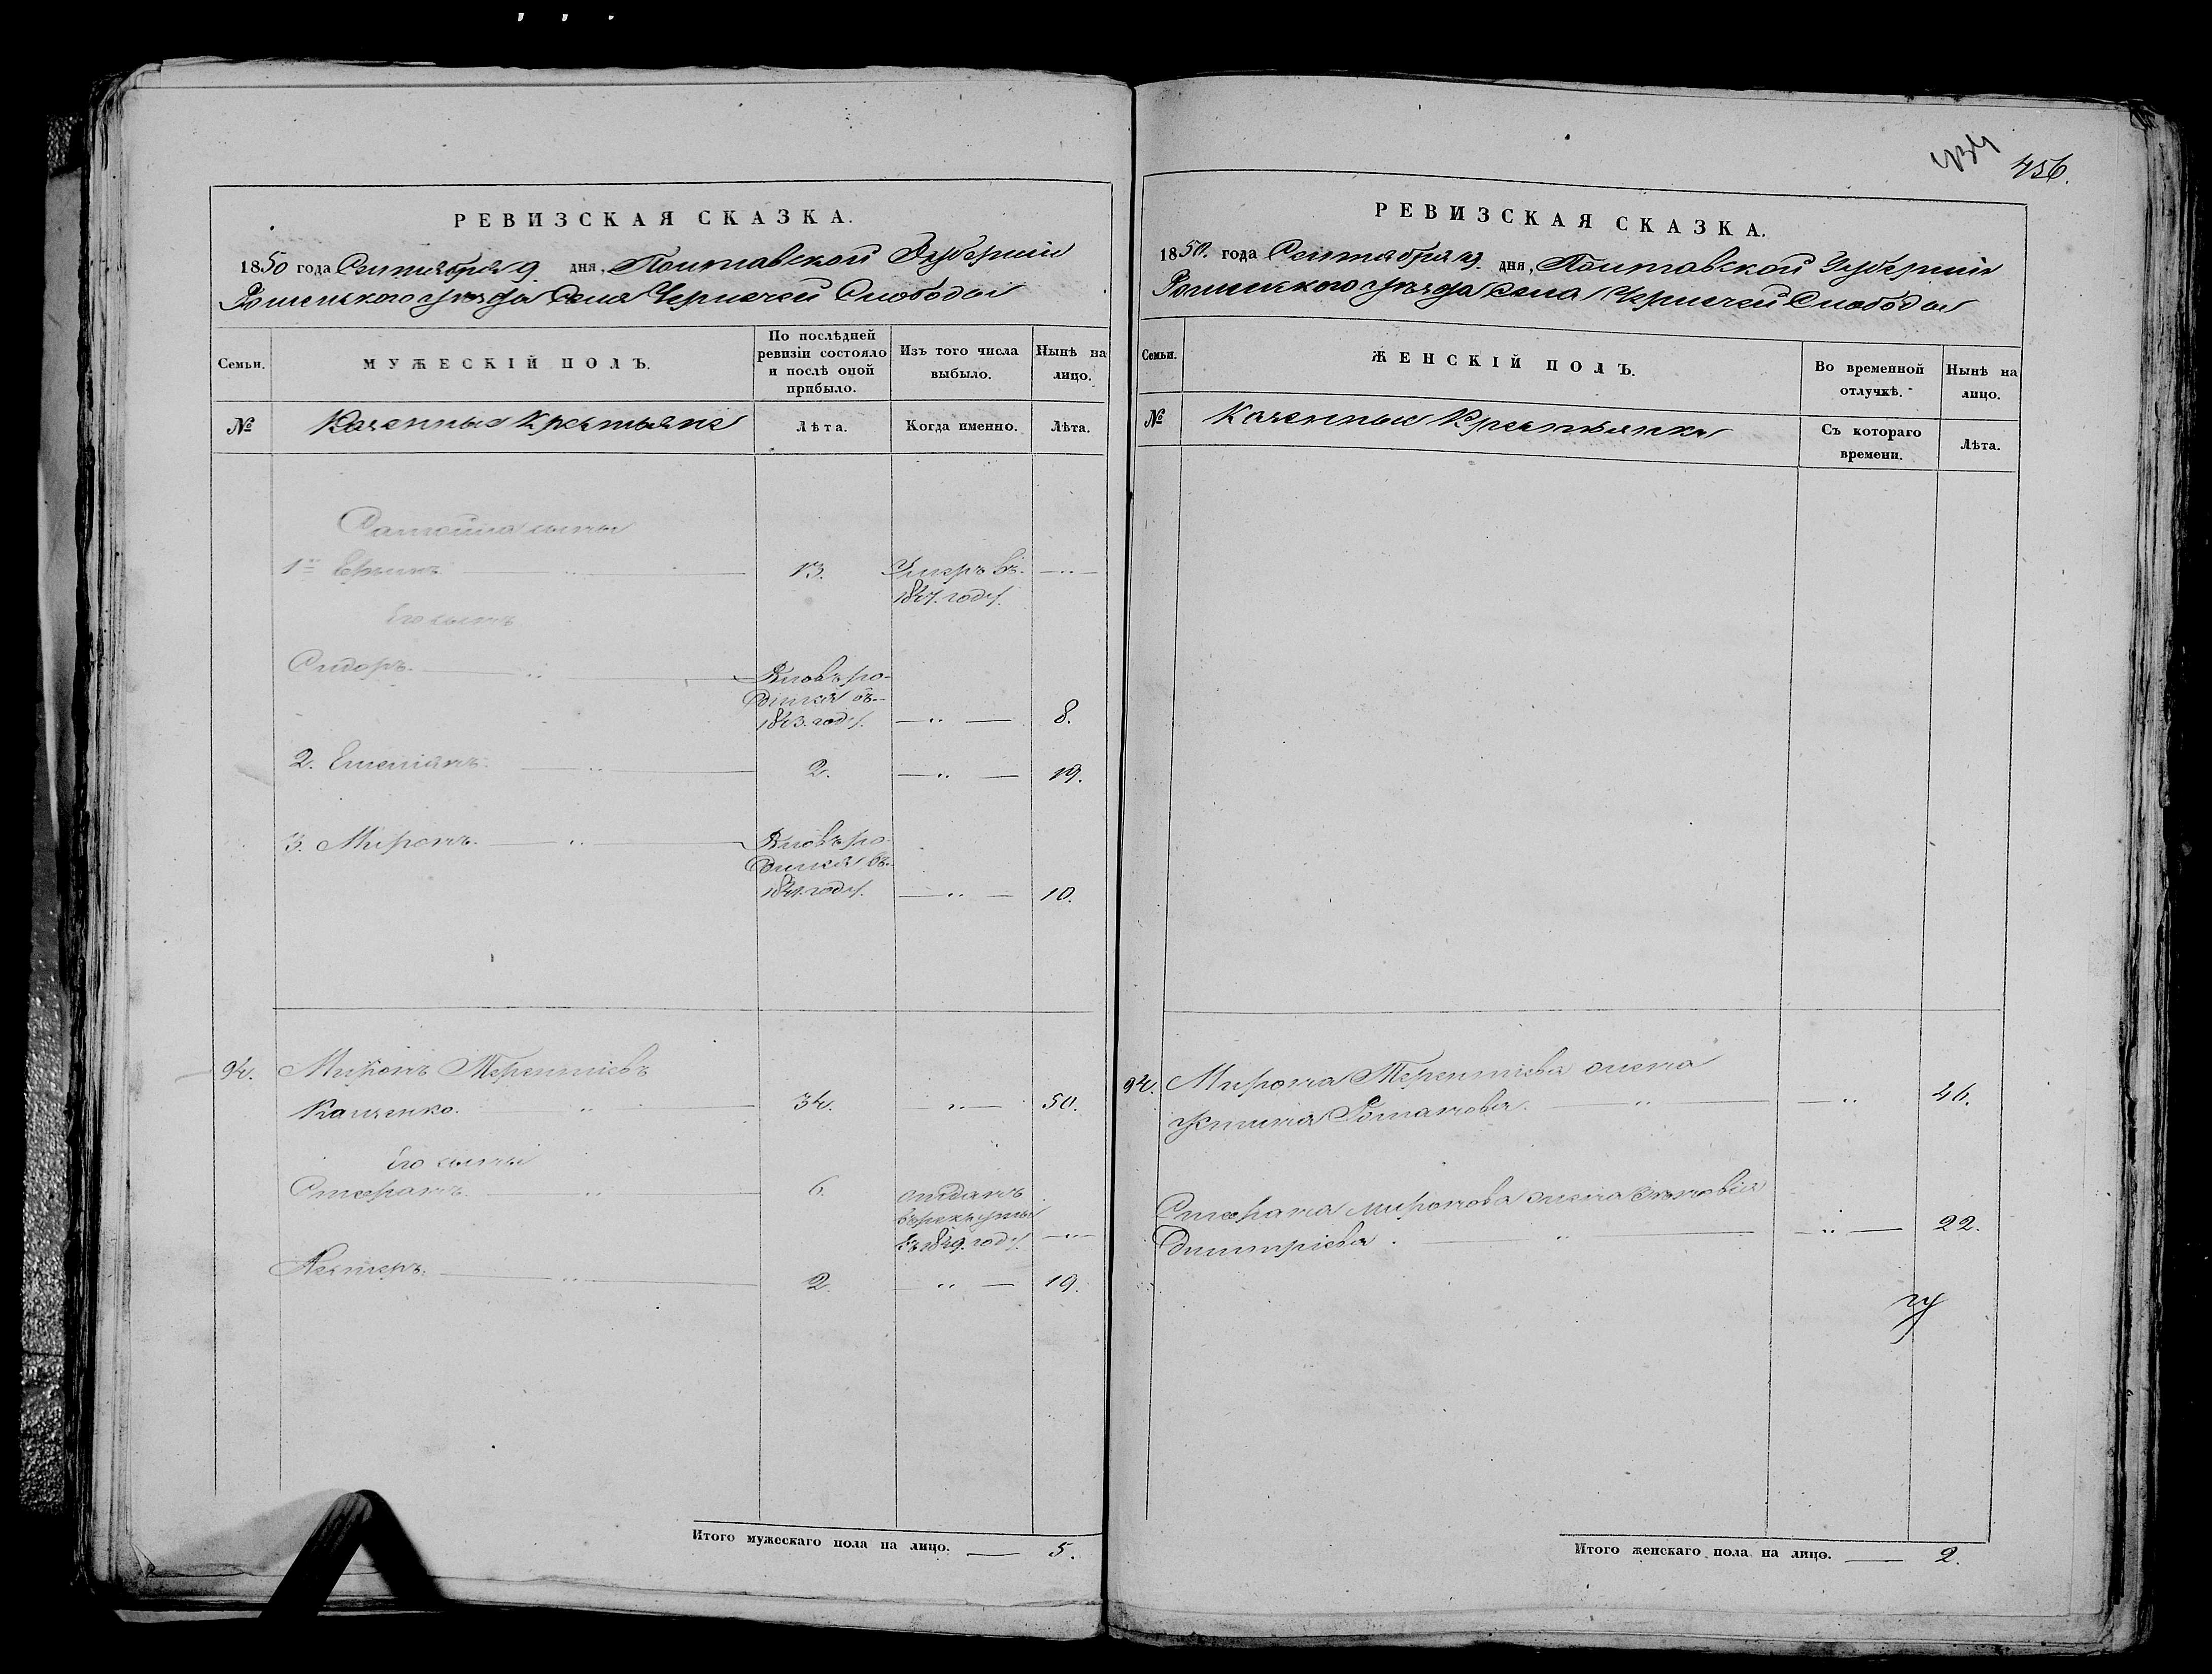 456.
РЕВИЗСКАЯ СКАЗКА.
1850 года Сентября 9 дня, Полтавской Губерніи
Роменского уезда Села Чернечей Слободы
Семьи.
МУЖЕСКІЙ ПОЛЪ.
По послѣдней
ревизіи состояло
и послѣ оной
прибыло.
Изъ того числа
выбыло.
Нынѣ на
лицо.
№
Казенные Крестьяне
Лѣта.
Когда именно.
Лѣта.
сыны
1й 13. Умеръ въ
году.
Его сынъ
Сидоръ. Вновь ро-
дился въ
1843. году. 8.
2. Емеліянъ. 2. 19.
3. Миронъ. Вновь ро-
дился въ
1841. году. 10.
94. Миронъ Терентіевъ
34. 50.
Его сыны
Стефанъ. 6. отданъ
в рекруты
въ 1849. году.
Нестеръ. 2. 19.
Итого мужескаго пола на лицо. 5.
РЕВИЗСКАЯ СКАЗКА.
1850. года Сентября 9. дня, Полтавской Губерніи
Роменского уезда Села Чернечей Слободы
Семьи.
ЖЕНСКІЙ ПОЛЪ.
Во временной
отлучкѣ.
Нынѣ на
лицо.
№
Казенные Крестьянки
Съ котораго
времени.
Лѣта.
94. Мирона Терентіева жена
Устина Романова. 46.
Стефана Миронова жена
Дмитріева. 22.
Итого женскаго пола на лицо. 2.